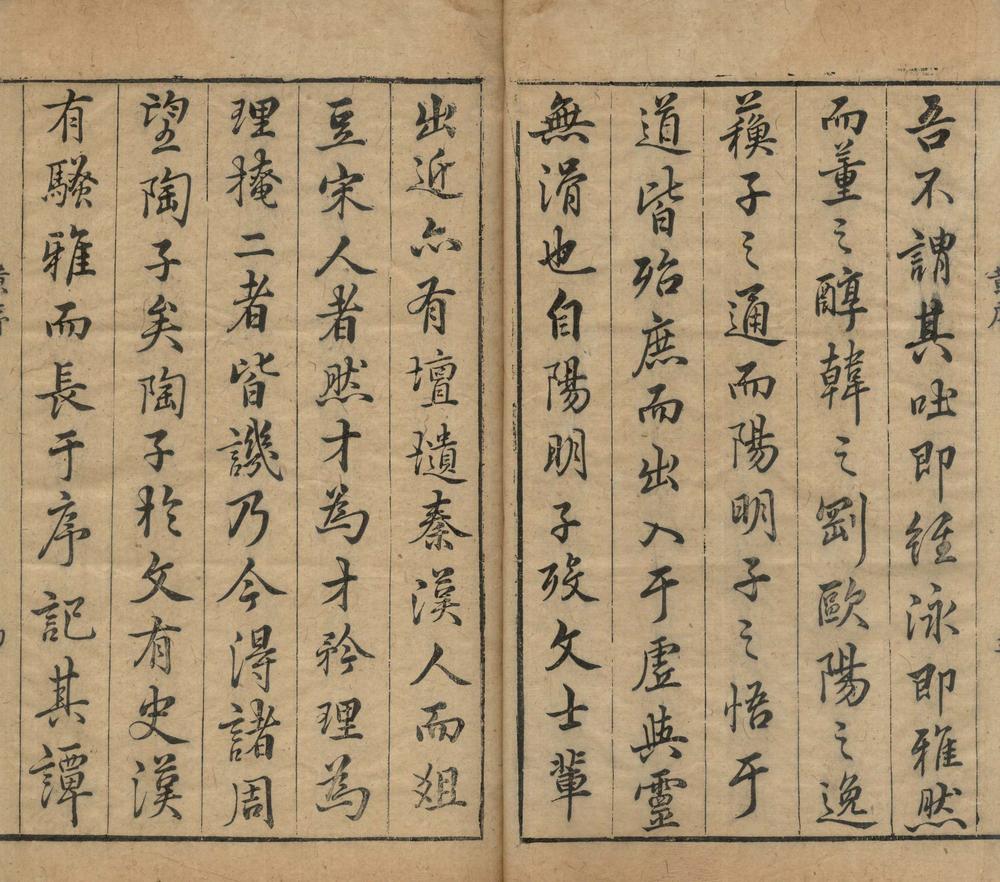 吾不謂其咄即經泳即雅然
而董之醇韓之劉歐陽之逸
蘓子之通而陽明子之悟于
道皆殆庶而出入于虛與靈
無滑也自陽明子歿文士輩
出近亦有壇壝秦漢人而爼
豆宋人者然才為才矜理為
理掩二者皆譏乃今得諸周
望陶子矣陶子於文有史漢
有騷雅而長于序記其譚